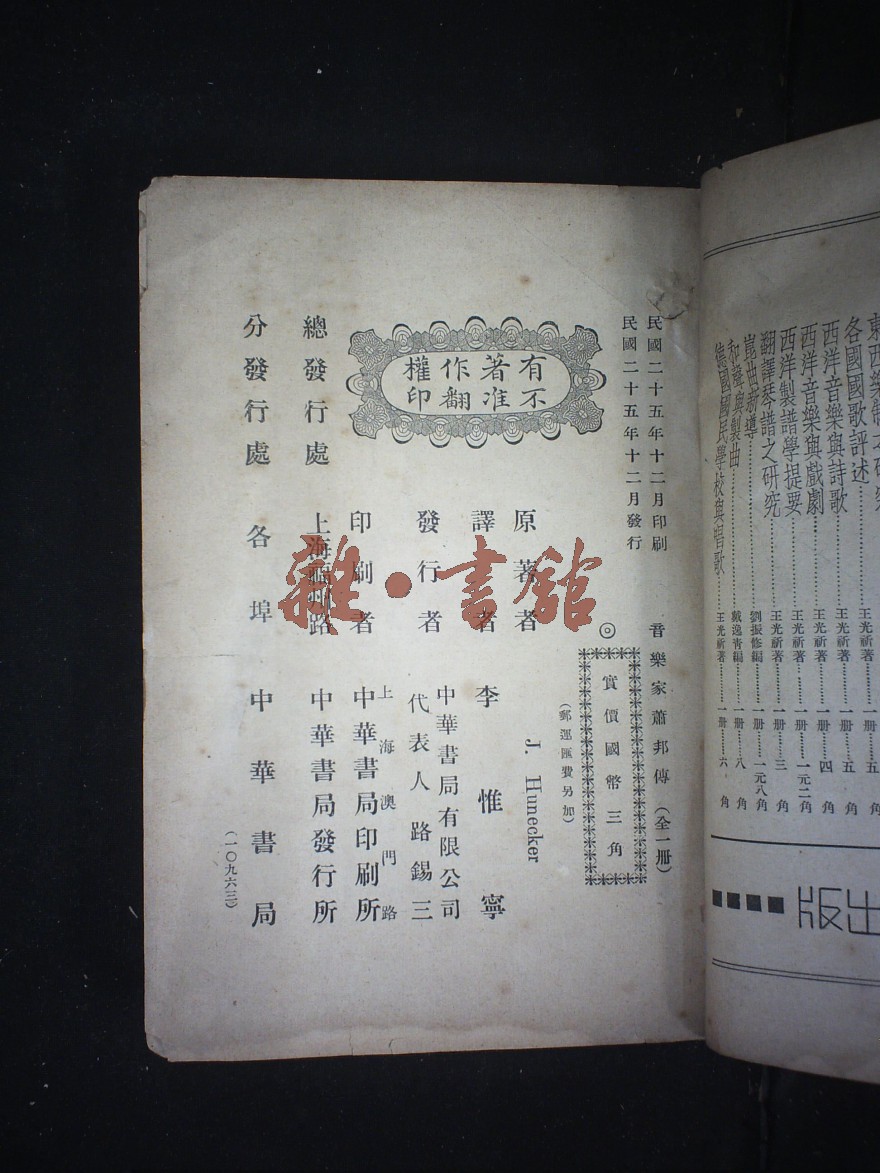 民國二十五年十二月印刷
民國二十五年十二月發行
音樂家蕭邦傳（全一冊）
◎
實價國幣三角
（郵運匯費另加）
有著作權
不准翻印
原著者 J. Hunecker
譯者 李惟寧
發行者 中華書局有限公司
代表人路錫三
印刷者 上海澳門路
中華書局印刷所
總發行處 上海福州路 中華書局發行所
分發行處 各埠 中華書局
（一〇九六三）
雜·書館
各國國歌評述……王光祈著……一冊……五角
西洋音樂與詩歌……王光祈著……一冊……四角
西洋音樂與戲劇……王光祈著……一冊……一元二角
西洋製譜學提要……王光祈著……一冊……三角
翻譯琴譜之研究……王光祈著……一冊……一元八角
崑曲新導……劉振修編
和聲與製曲……戴逸青編……一冊……八角
德國國民學校與唱歌……王光祈著……一冊……六角
出版